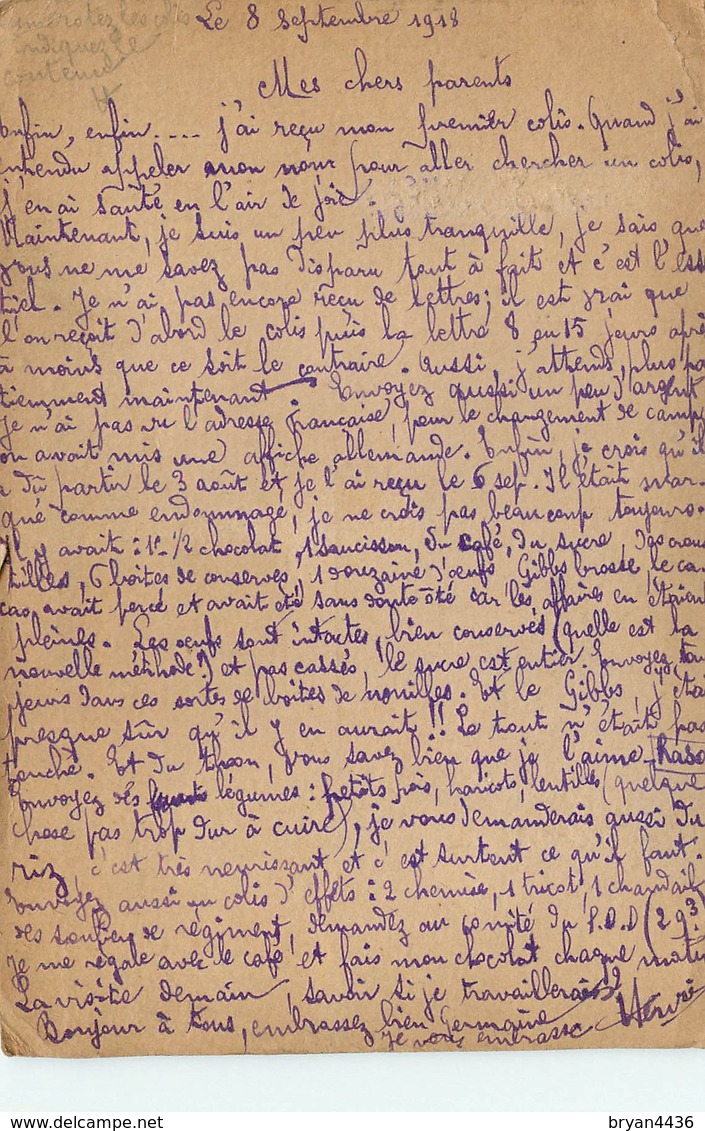 numérotez les colis
indiquez le
contenu
Le 8 Septembre 1918
Mes chers parents
Enfin, enfin.... j'ai reçu mon premier colis. Quand j'ai
entendu appeler mon nom pour aller chercher un colis,
j'en ai sauté en l'air de joie.
Maintenant, je suis un peu plus tranquille, je sais que
vous ne me savez pas disparu tout à fait et c'est l'ess
tiel. Je n'ai pas encore reçu de lettres; il est vrai que
l'on reçoit d'abord le colis puis la lettre 8 ou 15 jours aprè
à moins que ce soit le contraire. Aussi, j'attends, plus pa
tiemment maintenant. Envoyez aussi un peu d'argent
Je n'ai pas vu l'adresse française, pour le changement de camp
on avait mis une affiche allemande. Enfin, je crois qu'il
a dû partir le 3 août et je l'ai reçu le 6 sep. Il était mar-
qué comme endommagé, je ne crois pas beaucoup toujours.
Il y avait : 1 1/2 chocolat, 1 saucisson, du café, du sucre
tilles, 6 boîtes de conserves, 1 douzaine d'oeufs Gibbs brosse, le ca
cao avait percé et avait été sans doute ôté car les affaires en étaient
pleines. Les oeufs sont intactes, bien conservés (quelle est la
nouvelle méthode?) et pas cassés, le sucre est entier. Envoyez tou
jours dans ces sortes de boîtes de nouilles. Et le Gibbs, j'étai
presque sûr qu'il y en aurait!! Le tout n'était pas
touché. Et du thon, vous savez bien que je l'aime. Raso
Envoyez des légumes : petits pois, haricots, lentilles (quelque
chose pas trop dur à cuire), je vous demanderais aussi du
riz, c'est très nourrissant et c'est surtout ce qu'il faut.
Envoyez aussi un colis d'effets : 2 chemise, 1 tricot, 1 chandail
des de régiment, demandez au comité du
Je me régale avec le café et fais mon chocolat chaque matin
La visite demain, savoir si je travaillerais?
Bonjour à tous, embrassez bien Germaine
Je vous embrasse Hervé
bryan4436